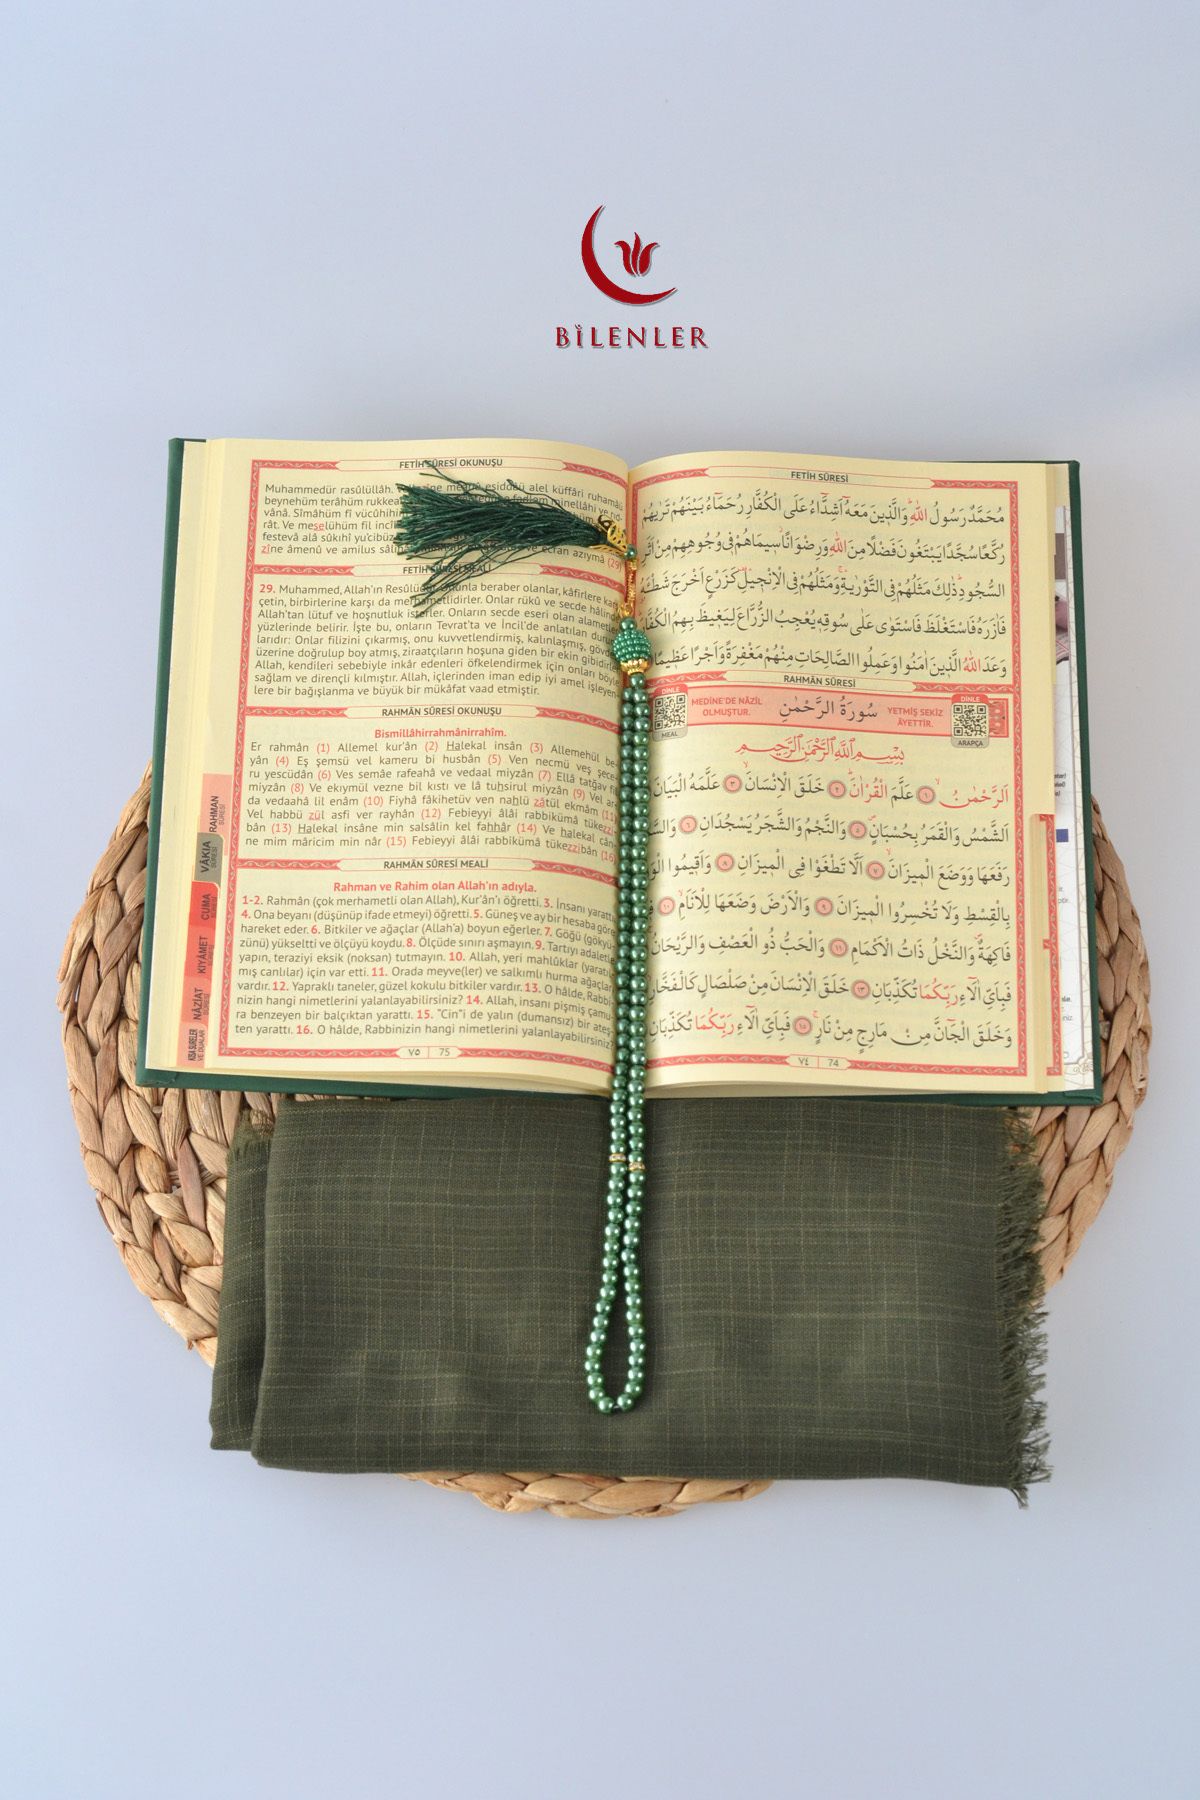 BİLENLER
FETİH SÛRESİ OKUNUŞU
Muhammedür rasûlüllâh. eşiddâü alel küffâri ruhamâü
beynehüm terâhüm rukkea minellâhi ve rıd-
vânâ. Sîmâhüm fî vücûhihim
rât. Ve meselühüm fil incîl
festevâ alâ sûkıhî yu'cibüz
zîne âmenû ve amilus sâlih ve ecran azıymâ (29)
FETİH SÛRESİ MEALİ
29. Muhammed, Allah'ın Resûlüdür. Onunla beraber olanlar, kâfirlere karşı
çetin, birbirlerine karşı da merhametlidirler. Onlar rükû ve secde hâlinde,
Allah'tan lütuf ve hoşnutluk isterler. Onların secde eseri olan alametleri
yüzlerinde belirir. İşte bu, onların Tevrat'ta ve İncil'de anlatılan durum-
larıdır: Onlar filizini çıkarmış, onu kuvvetlendirmiş, kalınlaşmış, gövdesi
üzerine doğrulup boy atmış, ziraatçıların hoşuna giden bir ekin gibidirler.
Allah, kendileri sebebiyle inkâr edenleri öfkelendirmek için onları böyle
sağlam ve dirençli kılmıştır. Allah, içlerinden iman edip iyi amel işleyen-
lere bir bağışlanma ve büyük bir mükâfat vaad etmiştir.
RAHMÂN SÛRESİ OKUNUŞU
Bismillâhirrahmânirrahîm.
Er rahmân (1) Allemel kur'ân (2) Halekal insân (3) Allemehül be-
yân (4) Eş şemsü vel kameru bi husbân (5) Ven necmü veş şece-
ru yescüdân (6) Ves semâe rafeahâ ve vedaal miyzân (7) Ellâ tatğav fil
miyzân (8) Ve ekıymül vezne bil kıstı ve lâ tuhsirul miyzân (9) Vel ar-
da vedaahâ lil enâm (10) Fiyhâ fâkihetüv ven nahlü zâtül ekmâm (11)
Vel habbü zül asfi ver rayhân (12) Febieyyi âlâi rabbikümâ tükezzi-
bân (13) Halekal insâne min salsâlin kel fahhâr (14) Ve halekal cân-
ne mim mâricim min nâr (15) Febieyyi âlâi rabbikümâ tükezzibân (16)
RAHMÂN SÛRESİ MEALİ
Rahman ve Rahim olan Allah'ın adıyla.
1-2. Rahmân (çok merhametli olan Allah), Kur'ân'ı öğretti. 3. İnsanı yarattı.
4. Ona beyanı (düşünüp ifade etmeyi) öğretti. 5. Güneş ve ay bir hesaba göre
hareket eder. 6. Bitkiler ve ağaçlar (Allah'a) boyun eğerler. 7. Göğü (gökyü-
zünü) yükseltti ve ölçüyü koydu. 8. Ölçüde sınırı aşmayın. 9. Tartıyı adaletle
yapın, teraziyi eksik (noksan) tutmayın. 10. Allah, yeri mahlûklar (yaratıl-
mış canlılar) için var etti. 11. Orada meyve(ler) ve salkımlı hurma ağaçları
vardır. 12. Yapraklı taneler, güzel kokulu bitkiler vardır. 13. O hâlde, Rabbi-
nizin hangi nimetlerini yalanlayabilirsiniz? 14. Allah, insanı pişmiş çamu-
ra benzeyen bir balçıktan yarattı. 15. "Cin"i de yalın (dumansız) bir ateş-
ten yarattı. 16. O hâlde, Rabbinizin hangi nimetlerini yalanlayabilirsiniz?
٧٥ 75
RAHMAN SÛRESİ
VÂKIA SÛRESİ
CUMA SÛRESİ
KIYÂMET SÛRESİ
NÂZİAT SÛRESİ
KISA SURELER VE DUALAR
FETİH SÛRESİ
مُحَمَّدٌ رَسُولُ اللّٰهِ وَالَّذٖينَ مَعَهُٓ اَشِدَّٓاءُ عَلَى الْكُفَّارِ رُحَمَٓاءُ بَيْنَهُمْ تَرٰيهُمْ
رُكَّعًا سُجَّدًا يَبْتَغُونَ فَضْلًا مِنَ اللّٰهِ وَرِضْوَانًا سٖيمَاهُمْ فٖى وُجُوهِهِمْ مِنْ اَثَرِ
السُّجُودِ ذٰلِكَ مَثَلُهُمْ فِى التَّوْرٰيةِ وَمَثَلُهُمْ فِى الْاِنْجٖيلِ كَزَرْعٍ اَخْرَجَ شَطْـَٔهُ
فَاٰزَرَهُ فَاسْتَغْلَظَ فَاسْتَوٰى عَلٰى سُوقِهٖ يُعْجِبُ الزُّرَّاعَ لِيَغٖيظَ بِهِمُ الْكُفَّارَ
وَعَدَ اللّٰهُ الَّذٖينَ اٰمَنُوا وَعَمِلُوا الصَّالِحَاتِ مِنْهُمْ مَغْفِرَةً وَاَجْرًا عَظٖيمًا
RAHMÂN SÛRESİ
DİNLE
MEAL
MEDİNE'DE NÂZİL
OLMUŞTUR.
سُورَةُ الرَّحْمٰنِ
YETMİŞ SEKİZ
ÂYETTİR.
DİNLE
ARAPÇA
بِسْمِ اللّٰهِ الرَّحْمٰنِ الرَّحٖيمِ
اَلرَّحْمٰنُ ١ عَلَّمَ الْقُرْاٰنَ ٢ خَلَقَ الْاِنْسَانَ ٣ عَلَّمَهُ الْبَيَانَ
اَلشَّمْسُ وَالْقَمَرُ بِحُسْبَانٍ ٥ وَالنَّجْمُ وَالشَّجَرُ يَسْجُدَانِ ٦
رَفَعَهَا وَوَضَعَ الْمٖيزَانَ ٧ اَلَّا تَطْغَوْا فِى الْمٖيزَانِ ٨ وَاَقٖيمُوا
بِالْقِسْطِ وَلَا تُخْسِرُوا الْمٖيزَانَ ٩ وَالْاَرْضَ وَضَعَهَا لِلْاَنَامِ ١٠
فَاكِهَةٌ وَالنَّخْلُ ذَاتُ الْاَكْمَامِ ١١ وَالْحَبُّ ذُو الْعَصْفِ وَالرَّيْحَانُ
فَبِاَىِّ اٰلَٓاءِ رَبِّكُمَا تُكَذِّبَانِ ١٣ خَلَقَ الْاِنْسَانَ مِنْ صَلْصَالٍ كَالْفَخَّارِ
وَخَلَقَ الْجَٓانَّ مِنْ مَارِجٍ مِنْ نَارٍ ١٥ فَبِاَىِّ اٰلَٓاءِ رَبِّكُمَا تُكَذِّبَانِ
٧٤ 74